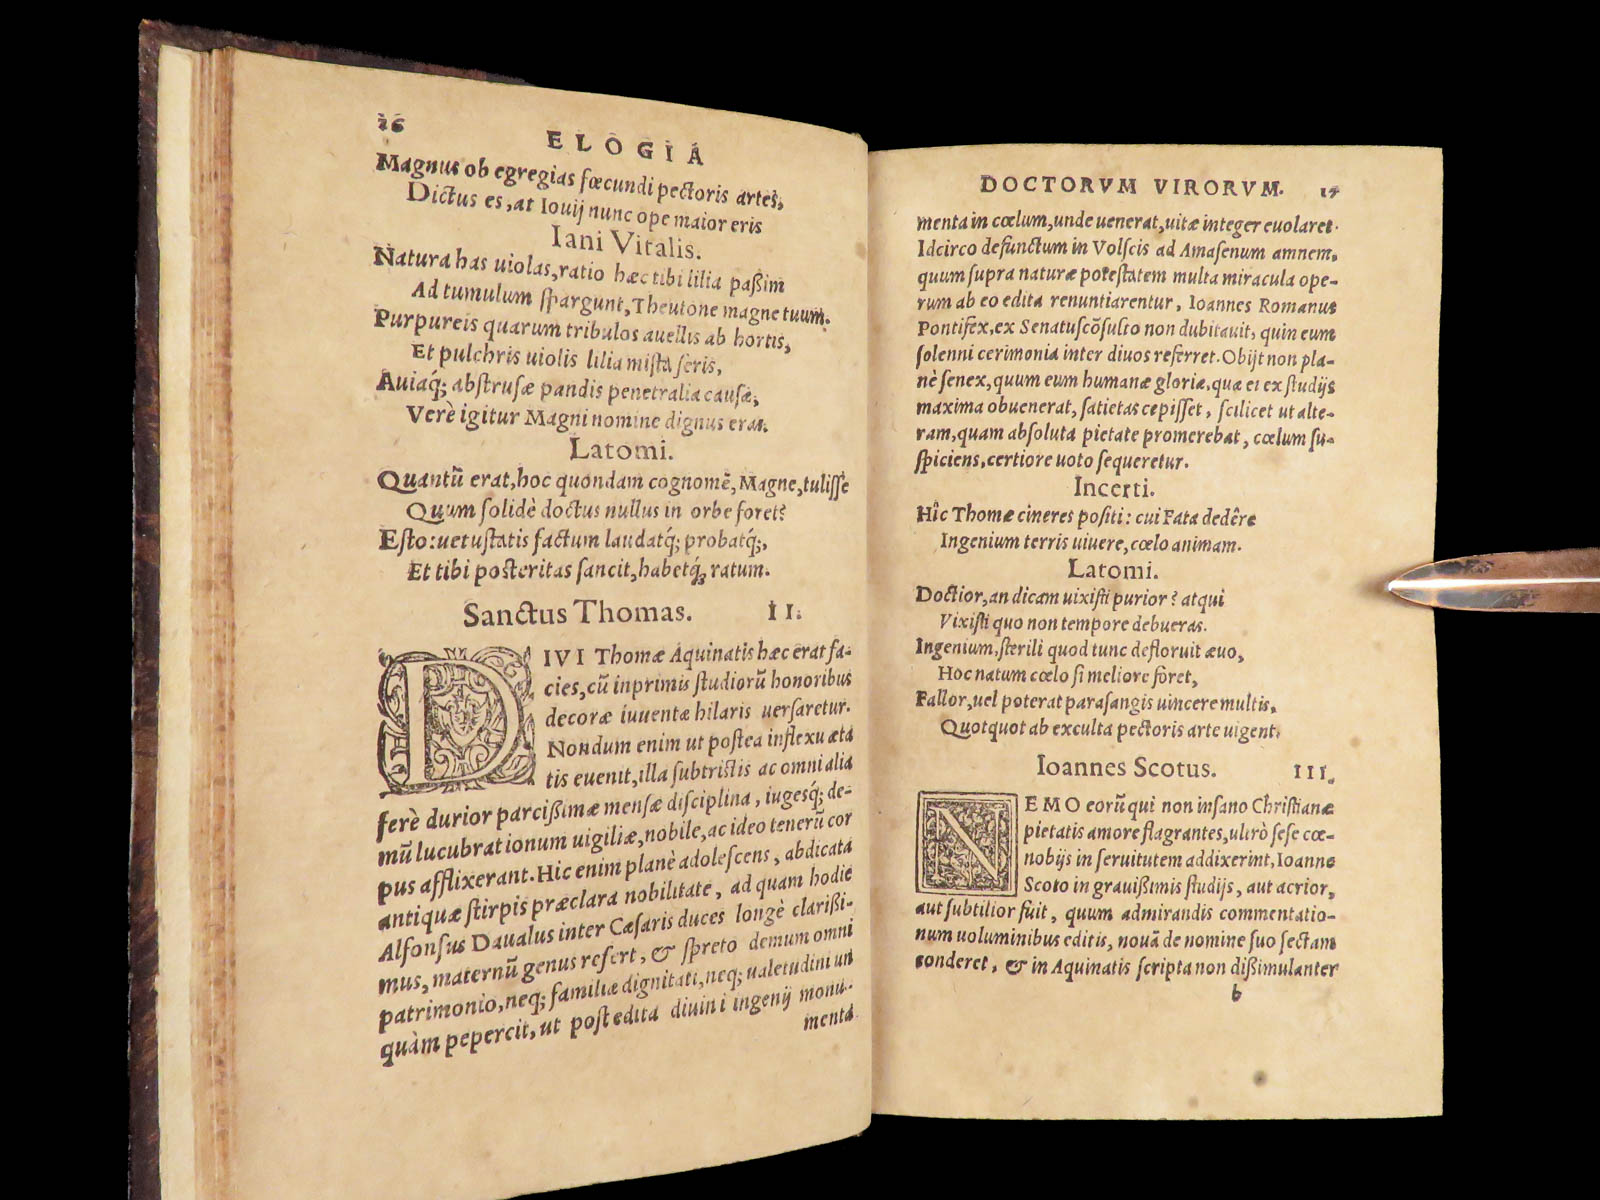 16
ELOGIA
Magnus ob egregias fœcundi pectoris artes,
Dictus es, at Iouij nunc ope maior eris
Iani Vitalis.
Natura has uiolas, ratio hæc tibi lilia paßim
Ad tumulum spargunt, Theutone magne tuum.
Purpureis quarum tribulos auellis ab hortis,
Et pulchris uiolis lilia mista seris,
Auiaq́; abstrusæ pandis penetralia causæ,
Verè igitur Magni nomine dignus eras.
Latomi.
Quantũ erat, hoc quondam cognomẽ, Magne, tulisse
Quum solidè doctus nullus in orbe foret?
Esto: uetustatis factum laudatq́; probatq́;,
Et tibi posteritas sancit, habetq́, ratum.
Sanctus Thomas. II.
DIVI Thomæ Aquinatis hæc erat fa-
cies, cũ inprimis studiorũ honoribus
decoræ iuuentæ hilaris uersaretur.
Nondum enim ut postea inflexu æta
tis euenit, illa subtristis ac omni alia
ferè durior parcißimæ mensæ disciplina, iugesq́; de-
mũ lucubrationum uigiliæ, nobile, ac ideo tenerũ cor
pus afflixerant. Hic enim planè adolescens, abdicata
antiquæ stirpis præclara nobilitate, ad quam hodie
Alfonsus Daualus inter Cæsaris duces longè clarißi-
mus, maternũ genus refert, & spreto demum omni
patrimonio, neq; familiæ dignitati, neq; ualetudini un
quàm pepercit, ut post edita diuini ingenij monu-
menta
DOCTORVM VIRORVM. 17
menta in cœlum, unde uenerat, uitæ integer euolaret.
Idcirco defunctum in Volscis ad Amasenum amnem,
quum supra naturæ potestatem multa miracula ope-
rum ab eo edita renuntiarentur, Ioannes Romanus
Pontifex, ex Senatuscõsulto non dubitauit, quin eum
solenni cerimonia inter diuos referret. Obijt non pla-
nè senex, quum eum humanæ gloriæ, quæ ei ex studijs
maxima obuenerat, satietas cepisset, scilicet ut alte-
ram, quam absoluta pietate promerebat, cœlum su-
spiciens, certiore uoto sequeretur.
Incerti.
Hîc Thomæ cineres positi: cui Fata dedêre
Ingenium terris uiuere, cœlo animam.
Latomi.
Doctior, an dicam uixisti purior? atqui
Vixisti quo non tempore debueras.
Ingenium, sterili quod tunc defloruit æuo,
Hoc natum cœlo si meliore foret,
Fallor, uel poterat parasangis uincere multis,
Quotquot ab exculta pectoris arte uigent.
Ioannes Scotus. III.
NEMO eorũ qui non insano Christianæ
pietatis amore flagrantes, ultrò sese cœ-
nobijs in seruitutem addixerint, Ioanne
Scoto in grauißimis studijs, aut acrior,
aut subtilior fuit, quum admirandis commentatio-
num uoluminibus editis, nouã de nomine suo sectam
conderet, & in Aquinatis scripta non dißimulanter
b